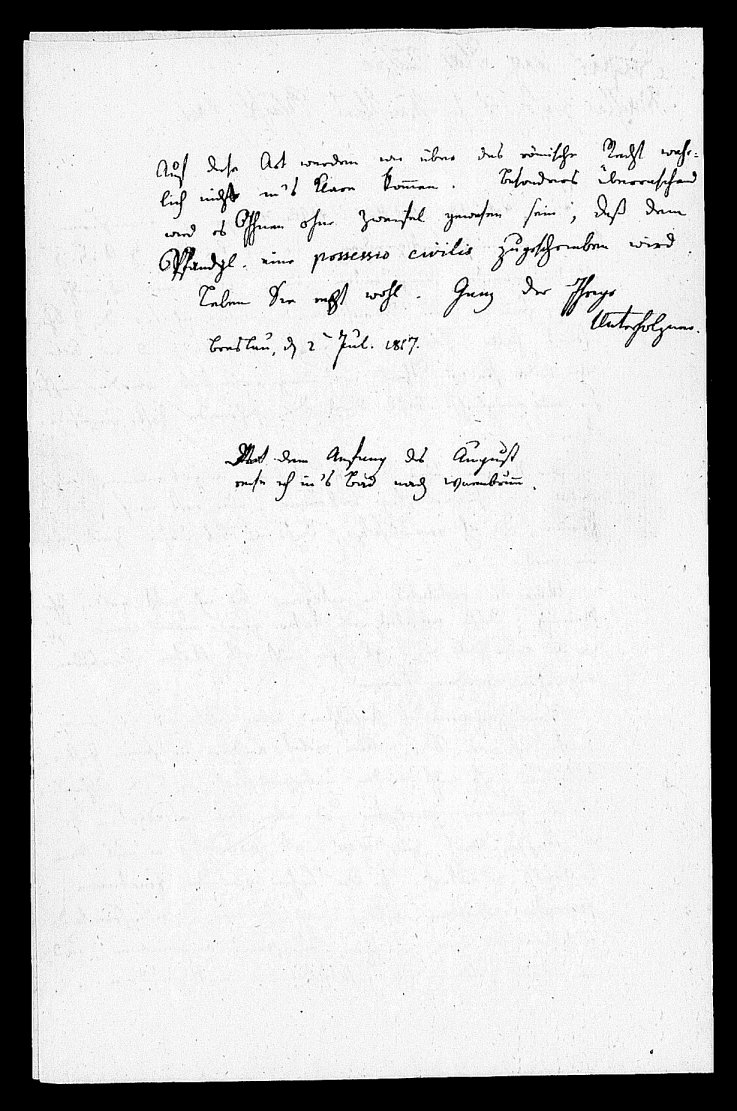 Auf diese Art werden wir über das römische Recht wahr=
lich nicht in's Klare kommen. Besonders überraschend
wird es Ihnen ohne Zweifel gewesen sein, daß dem
Pfandgl. eine possessio civilis zugeschrieben wird.
Leben Sie recht wohl. Ganz der Ihrige
Unterholzner.
Breslau, d. 2 Jul. 1817.
Mit dem Anfang des August
reise ich in's Bad nach Warmbrunn.